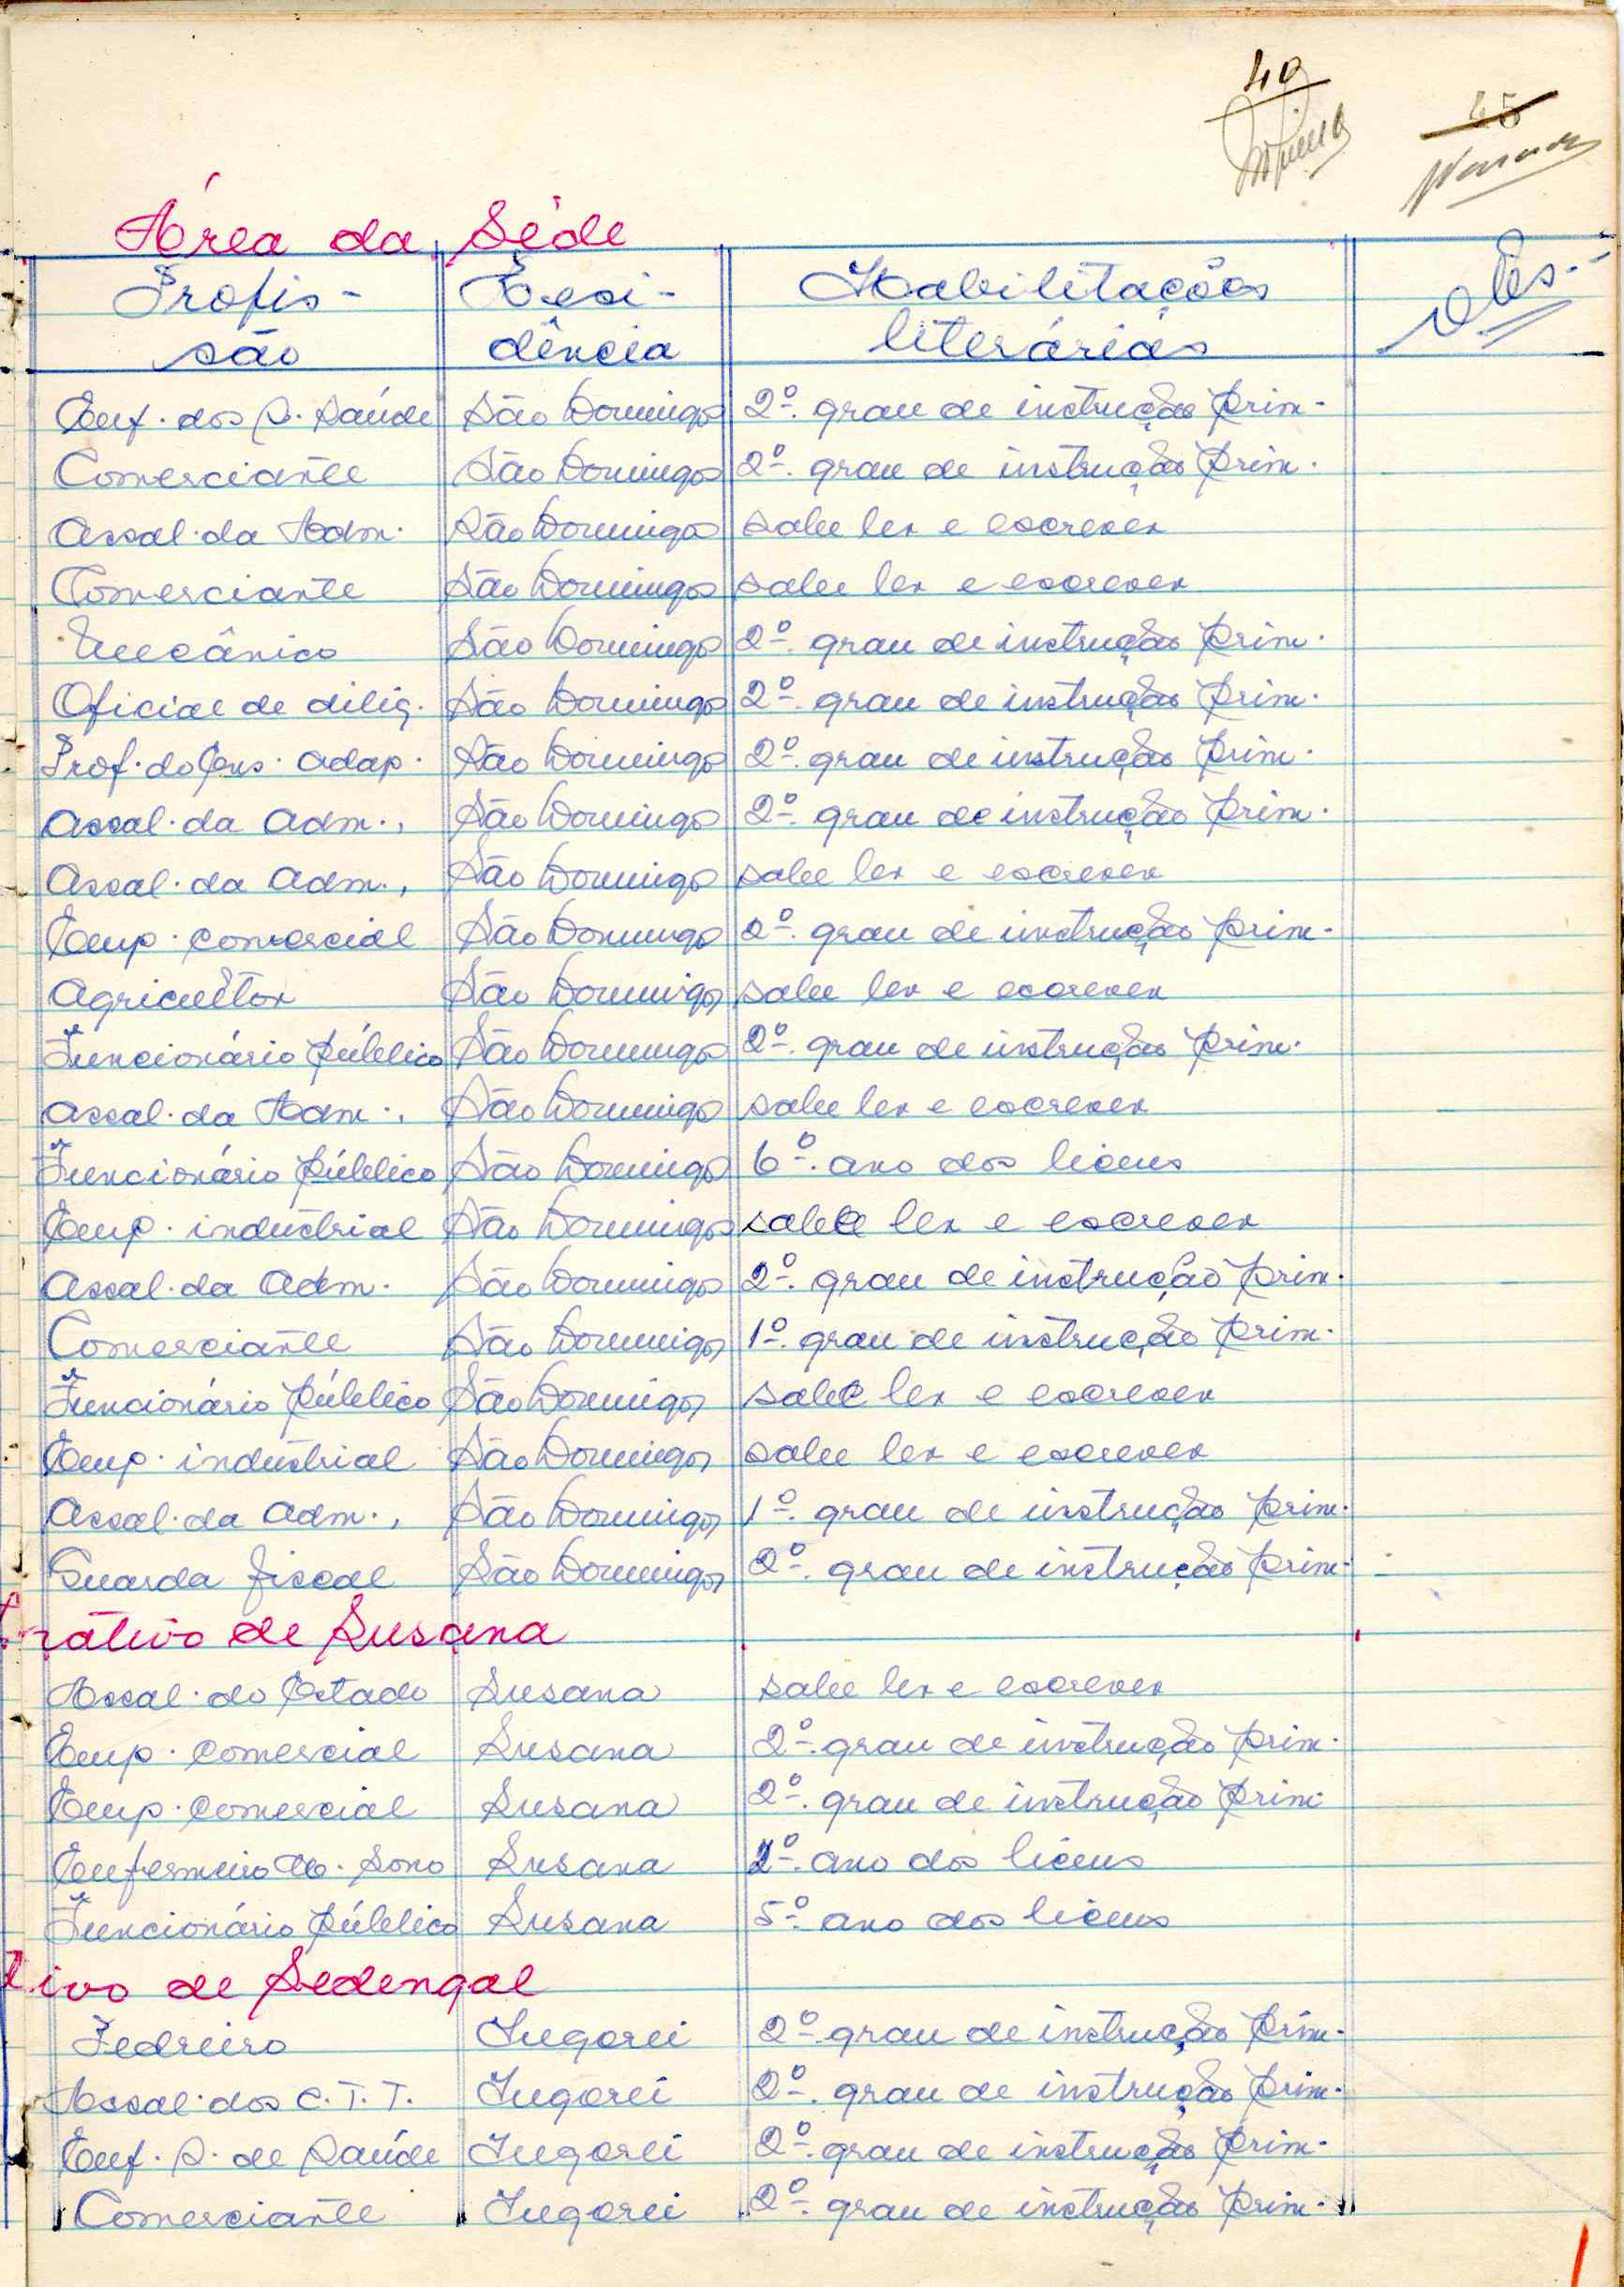 40
45
Área da Séde
Profis- Resi- Habilitações Obs.
são dência literárias
Enf. dos S. Saúde São Domingos 2º. grau de instrução prim.
Comerciante São Domingos 2º. grau de instrução prim.
Assal. da Adm. São Domingos sabe ler e escrever
Comerciante São Domingos sabe ler e escrever
Mecânico São Domingos 2º. grau de instrução prim.
Oficial de dilig. São Domingos 2º. grau de instrução prim.
Prof. do Ens. Adap. São Domingos 2º. grau de instrução prim.
Assal. da Adm., São Domingos 2º. grau de instrução prim.
Assal. da Adm., São Domingos sabe ler e escrever
Emp. comercial São Domingos 2º. grau de instrução prim.
Agricultor São Domingos sabe ler e escrever
Funcionário público São Domingos 2º. grau de instrução prim.
Assal. da Adm., São Domingos sabe ler e escrever
Funcionário público São Domingos 6º. ano dos liceus
Emp. industrial São Domingos sabe ler e escrever
Assal. da Adm. São Domingos 2º. grau de instrução prim.
Comerciante São Domingos 1º. grau de instrução prim.
Funcionário público São Domingos sabe ler e escrever
Emp. industrial São Domingos sabe ler e escrever
Assal. da Adm., São Domingos 1º. grau de instrução prim.
Guarda fiscal São Domingos 2º. grau de instrução prim.
trativo de Susana
Assal. do Estado Susana sabe ler e escrever
Emp. comercial Susana 2º. grau de instrução prim.
Emp. comercial Susana 2º. grau de instrução prim.
Enfermeiro M. Sono Susana 2º. ano dos liceus
Funcionário público Susana 5º. ano dos liceus
tivo de Sedengal
Pedreiro Ingorei 2º. grau de instrução prim.
Assal. dos C.T.T. Ingorei 2º. grau de instrução prim.
Enf. S. de Saúde Ingorei 2º. grau de instrução prim.
Comerciante Ingorei 2º. grau de instrução prim.